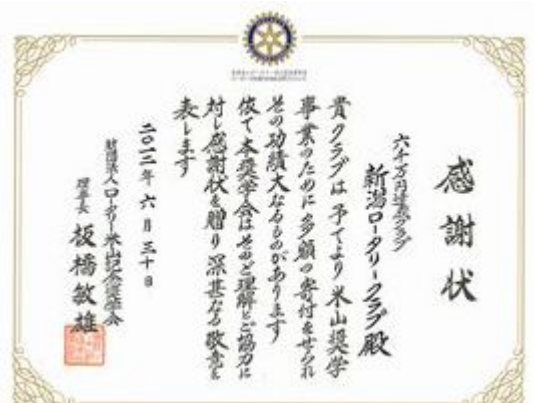 感謝状
六千万円達成クラブ
新潟ロータリークラブ殿
貴クラブは予てより米山奨学
事業のために多額の寄付をせられ
その功績大なるものがあります
依て本奨学会はそのご理解とご協力に
対し感謝状を贈り深甚なる敬意を
表します
二〇一二年六月三十日
財団法人ロータリー米山記念奨学会
理事長 板橋敏雄